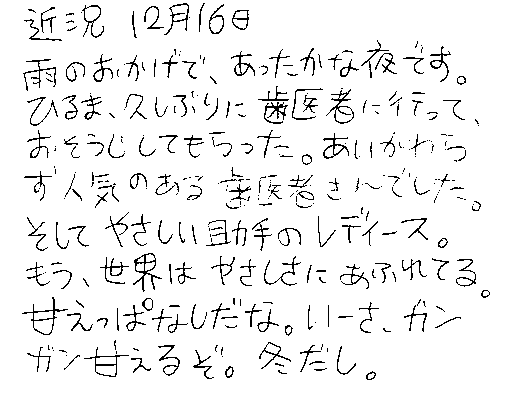 近況 12月16日
雨のおかげで、あったかな夜です。
ひるま、久しぶりに歯医者に行って、
おそうじしてもらった。あいかわら
ず人気のある歯医者さんでした。
そしてやさしい助手のレディース。
もう、世界はやさしさにあふれてる。
甘えっぱなしだな。いーさ、ガン
ガン甘えるぞ。冬だし。